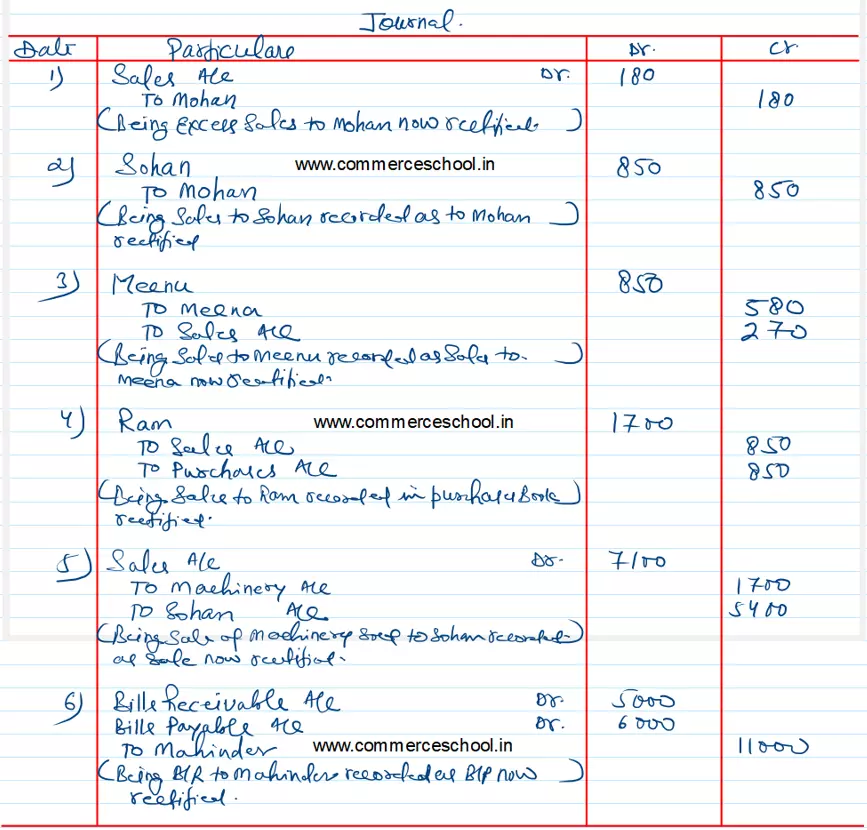 Journal.
Date Particulars Dr. Cr.
1) Sales A/c Dr. 180
To Mohan 180
(Being Excess Sales to Mohan now rectified.)
2) Sohan www.commerceschool.in 850
To Mohan 850
(Being Sales to Sohan recorded as to Mohan)
rectified
3) Meenu 850
To Meena 580
To Sales A/c 270
(Being Sales to Meenu recorded as Sales to)
Meena now rectified.
4) Ram www.commerceschool.in 1700
To Sales A/c 850
To Purchases A/c 850
(Being Sales to Ram recorded in purchases Book)
rectified.
5) Sales A/c Dr. 7100
To Machinery A/c 1700
To Sohan A/c 5400
(Being Sale of Machinery Sold to Sohan recorded)
as Sale now rectified.
6) Bills Receivable A/c Dr. 5000
Bills Payable A/c Dr. 6000
To Mahinder www.commerceschool.in 11000
(Being B/R to Mahinder recorded as B/P now)
rectified.